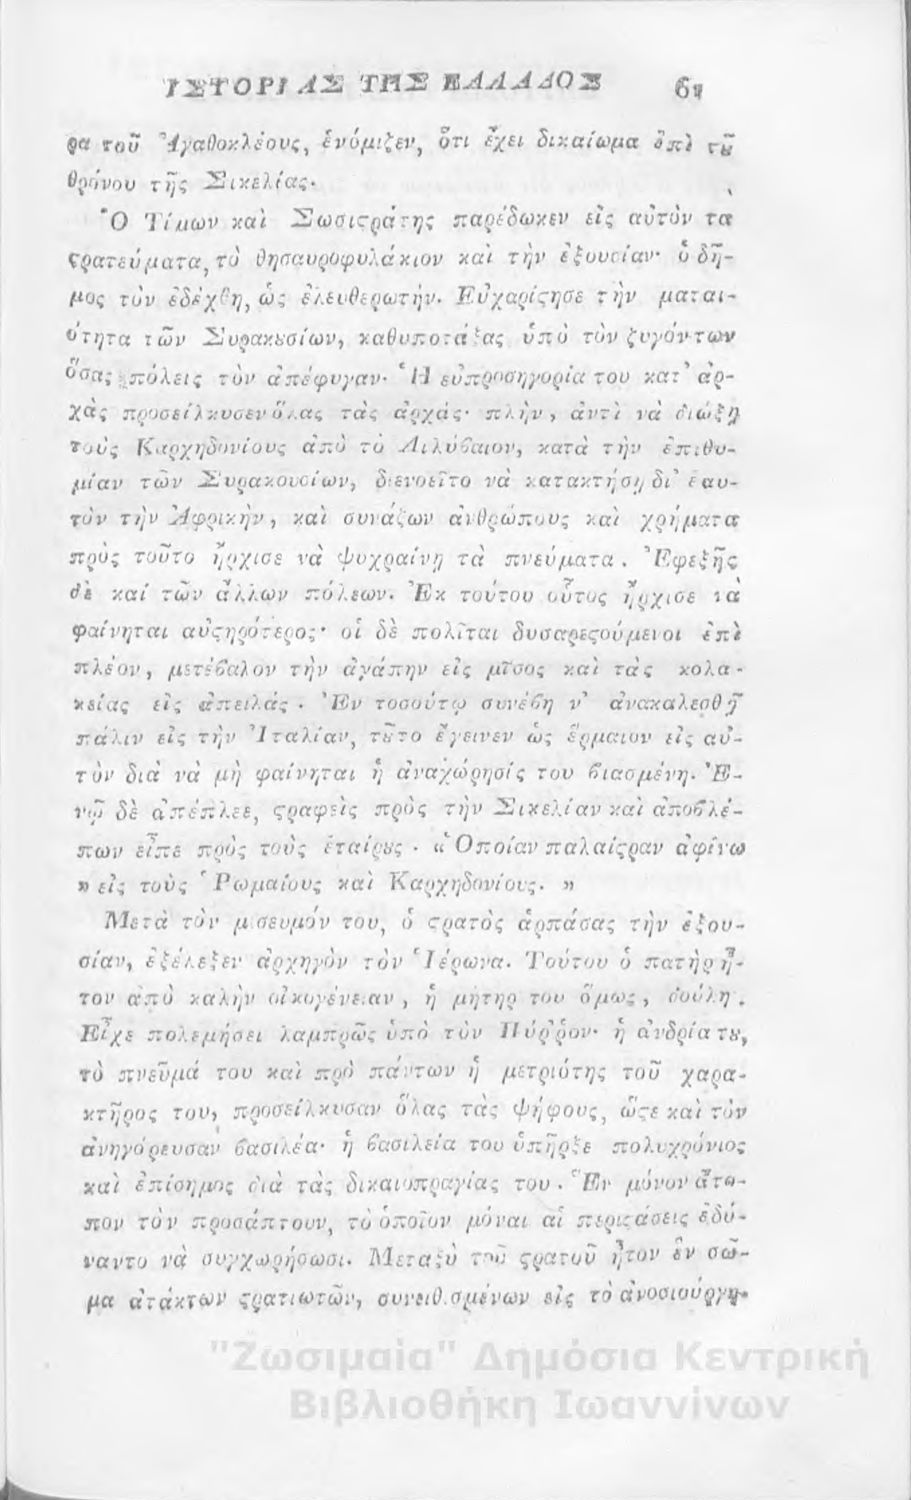 ΙΣΤΟΡΙΑΣ ΤΗΣ ΕΛΛΑΔΟΣ
ρα τοῦ Ἀγαθοκλέους, ἐνόμιζεν, ὅτι ἔχει δικαίωμα ἐπὶ τȣ͂
θρόνου τῆς Σικελίας.
Ὁ Τίμων καὶ Σωσιϛράτης παρέδωκεν εἰς αὐτὸν τα
ϛρατεύματα, τὸ θησαυροφυλάκιον καὶ τὴν ἐξουσίαν· ὁ δῆ-
μος τὸν ἐδέχθη, ὡς ἐλευθερωτήν. Εὐχαρίϛησε τὴν μαται-
ότητα τῶν Συρακȣσίων, καθυποτάξας ὑπὸ τὸν ζυγόν των
ὅσας πόλεις τὸν ἀπέφυγαν· Ἡ εὐπροσηγορία του κατ' ἀρ-
χὰς προσείλκυσεν ὅλας τὰς ἀρχάς· πλὴν, ἀντὶ νὰ διώξῃ
τοὺς Καρχηδονίους ἀπὸ τὸ Λιλύβαιον, κατὰ τὴν ἐπιθυ-
μίαν τῶν Συρακουσίων, διενοεῖτο νὰ κατακτήσῃ δι' ἑαυ-
τὸν τὴν Ἀφρικὴν, καὶ συνάζων ἀνθρώπους καὶ χρήματα
πρὸς τοῦτο ἤρχισε νὰ ψυχραίνῃ τὰ πνεύματα. Ἐφεξῆς
δὲ καί τῶν ἄλλων πόλεων. Ἐκ τούτου οὗτος ἤρχισε νὰ
φαίνηται αὐϛηρότερος· οἱ δὲ πολῖται δυσαρεϛούμενοι ἐπὶ
πλέον, μετέβαλον τὴν ἀγάπην εἰς μῖσος καὶ τὰς κολα-
κείας εἰς ἀπειλάς. Ἐν τοσούτῳ συνέβη ν' ἀνακαλεσθῇ
πάλιν εἰς τὴν Ἰταλίαν, τȣ͂το ἔγεινεν ὡς ἕρμαιον εἰς αὐ-
τὸν διὰ νὰ μὴ φαίνηται ἡ ἀναχώρησίς του βιασμένη. Ἐ-
νῷ δὲ ἀπέπλεε, ϛραφεὶς πρὸς τὴν Σικελίαν καὶ ἀποβλέ-
πων εἶπε πρὸς τοὺς ἑταίρȣς· «Ὁποίαν παλαίϛραν ἀφίνω
» εἰς τοὺς Ῥωμαίους καὶ Καρχηδονίους. »
Μετὰ τὸν μισευμόν του, ὁ ϛρατὸς ἁρπάσας τὴν ἐξου-
σίαν, ἐξέλεξεν ἀρχηγὸν τὸν Ἱέρωνα. Τούτου ὁ πατὴρ ἦ-
τον ἀπὸ καλὴν οἰκογένειαν, ἡ μήτηρ του ὅμως, δούλη.
Εἶχε πολεμήσει λαμπρῶς ὑπὸ τὸν Πύῤῥον· ἡ ἀνδρία τȣ,
τὸ πνεῦμά του καὶ πρὸ πάντων ἡ μετριότης τοῦ χαρα-
κτῆρος του, προσείλκυσαν ὅλας τὰς ψήφους, ὥϛε καὶ τὸν
ἀνηγόρευσαν βασιλέα· ἡ βασιλεία του ὑπῆρξε πολυχρόνιος
καὶ ἐπίσημος διὰ τὰς δικαιοπραγίας του. Ἓν μόνον ἄτο-
πον τὸν προσάπτουν, τὸ ὁποῖον μόναι αἱ περιϛάσεις ἐδύ-
ναντο νὰ συγχωρήσωσι. Μεταξὺ τοῦ ϛρατοῦ ἦτον ἓν σῶ-
μα ἀτάκτων ϛρατιωτῶν, συνειθισμένων εἰς τὸ ἀνοσιούργη-
"Ζωσιμαία" Δημόσια Κεντρική
Βιβλιοθήκη Ιωαννίνων